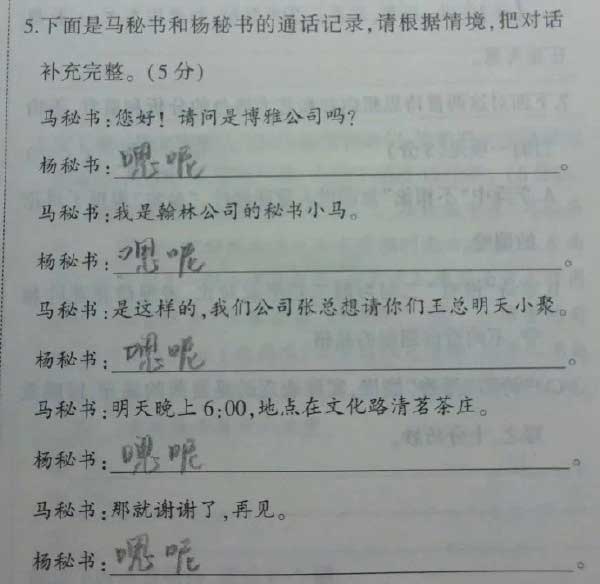 5.下面是马秘书和杨秘书的通话记录,请根据情境,把对话
补充完整。(5分)
马秘书:您好!请问是博雅公司吗?
杨秘书:嗯呢。
马秘书:我是翰林公司的秘书小马。
杨秘书:嗯呢。
马秘书:是这样的,我们公司张总想请你们王总明天小聚。
杨秘书:嗯呢。
马秘书:明天晚上6:00,地点在文化路清茗茶庄。
杨秘书:嗯呢。
马秘书:那就谢谢了,再见。
杨秘书:嗯呢。